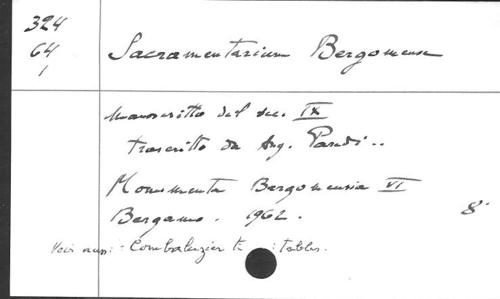 324
64
1
Sacramentarium Bergomense
Manoscritto del sec. IX
trascritto da Ang. Paredi..
Monumenta Bergomensia VI
Bergamo. 1962. 8°
Voir aussi: Combaluzier tables.